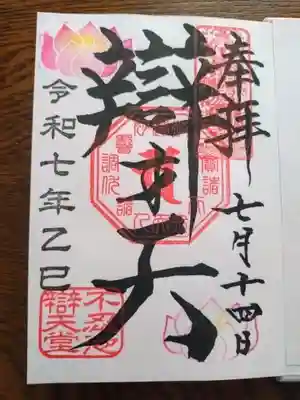 奉拝
七月十四日
辯才天
令和七年乙巳
不忍池
辯天堂